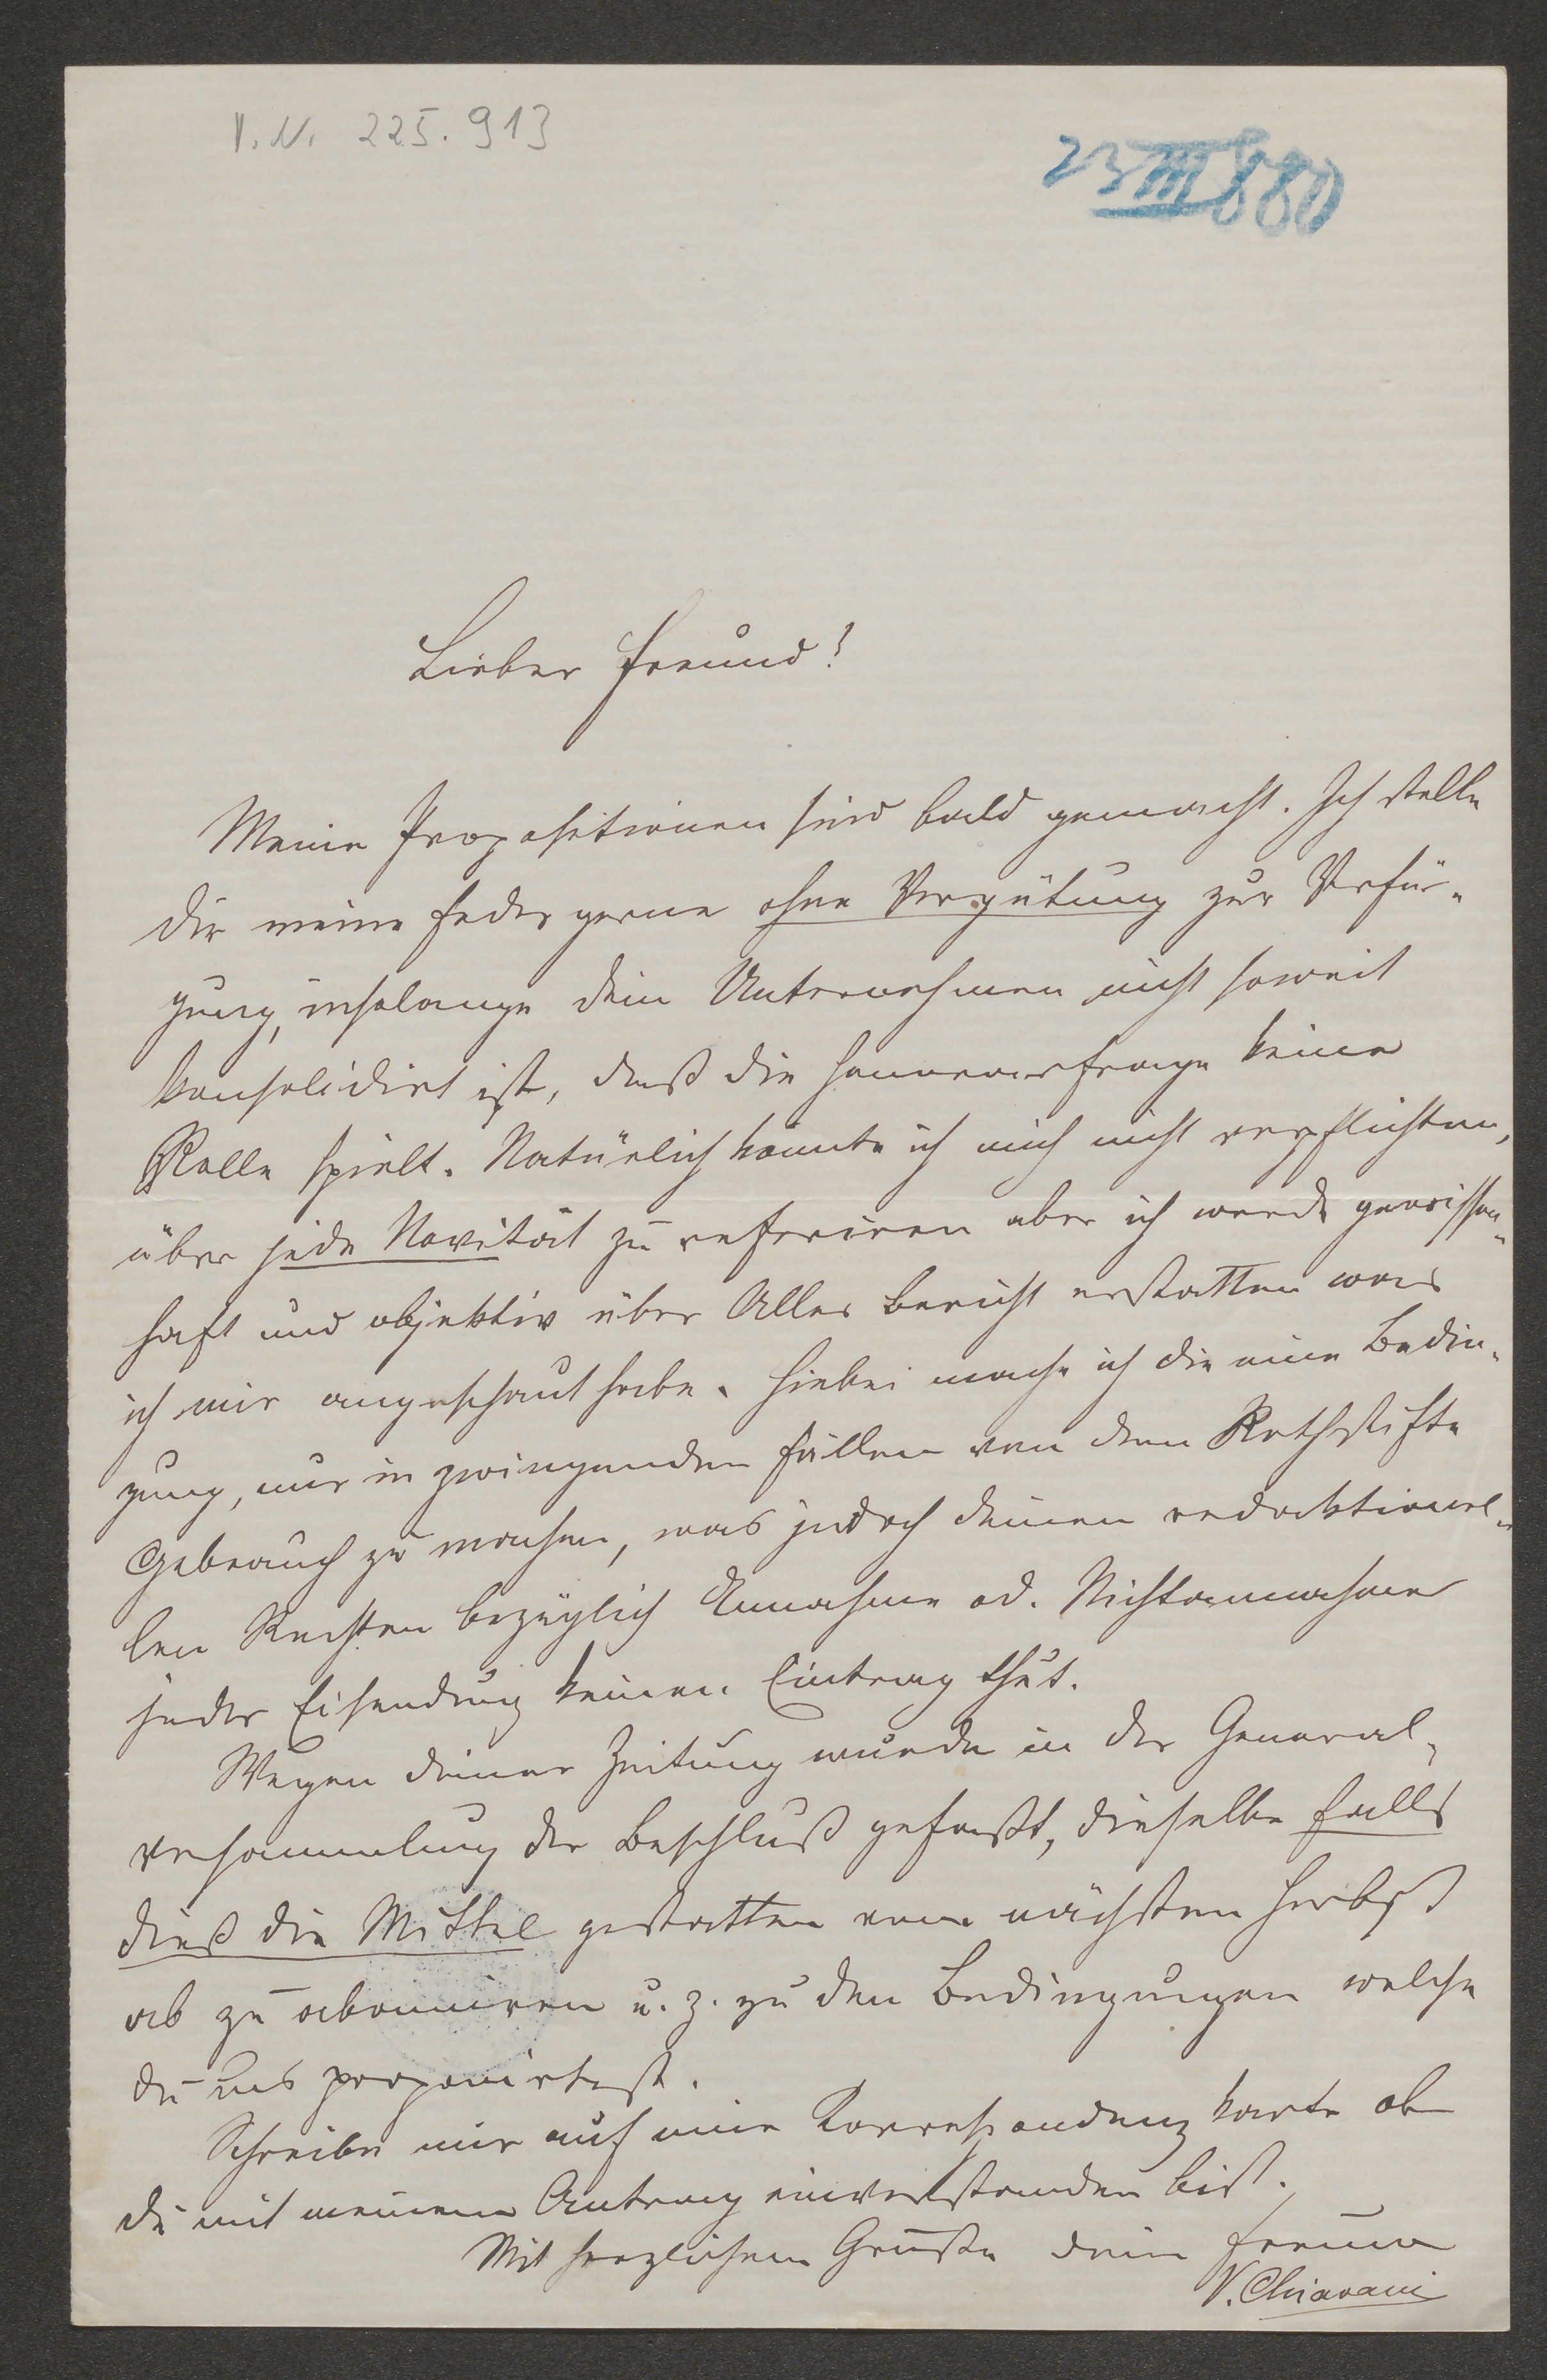 I.N. 225.913
23 III 880
Lieber Freund!
Meine Propositionen sind bald gemacht. Ich stelle
dir meine Feder gerne ohne Vergütung zur Verfü-
gung, insolange dein Unternehmen nicht soweit
konsolidirt ist, daß die Honorarfrage keine
Rolle spielt. Natürlich könnte ich mich nicht verpflichten,
über jede Novität zu referiren aber ich werde gewissen-
haft und objektiv über Alles Bericht erstatten was
ich mir angeschaut habe. Hiebei mache ich die eine Bedin-
gung, nur in zwingenden Fällen von dem Rothstifte
Gebrauch zu machen, was jedoch deinen redaktionel-
len Rechten bezüglich Annahme od. Nichtannahme
jeder Eisendung keinen Eintrag thut.
Wegen deiner Zeitung wurde in der General-
versammlung der Beschluß gefaßt, dieselbe falls
dieß die Mittel gestatten vom nächsten Herbst
ab zu abonniren u. z. zu den Bedingungen welche
du uns proponirtest.
Schreibe mir auf eine Korrespondenzkarte ob
du mit meinem Antrag einverstanden bist.
Mit herzlichem Gruße dein Freund
V. Chiavacci